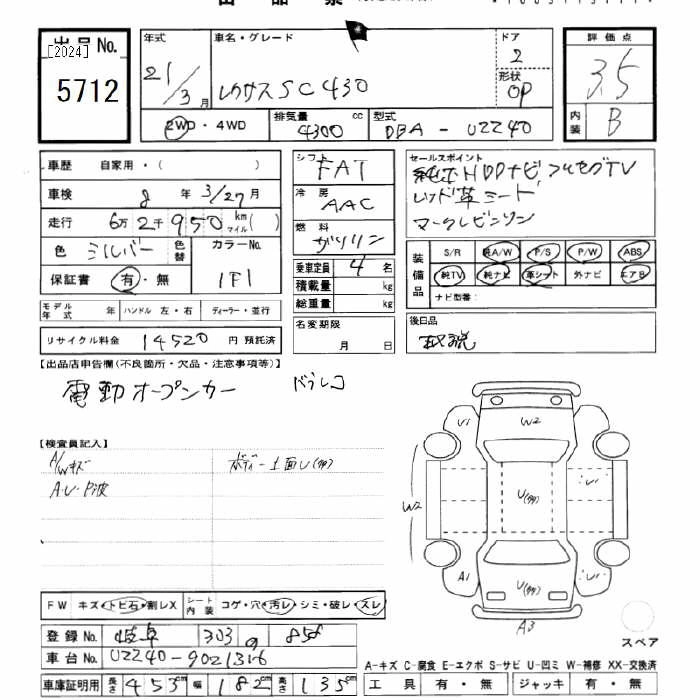 出品票
[2024]
出品 No.
5712
年式
21/3月
車名・グレード
レクサスSC430
ドア
2
形状
OP
2WD・4WD
排気量
4300 cc
型式
DBA-UZZ40
評価点
3.5
内装
B
車歴 自家用・( )
車検 8年 3/27月
走行 6万2千950 km マイル( )
色 シルバー 色替
カラーNo. 1F1
保証書 有・無
モデル年式 年 ハンドル 左・右 ディーラー・並行
リサイクル料金 14520 円 預託済
シフト FAT
冷房 AAC
燃料 ガソリン
乗車定員 4名
積載量 kg
総重量 kg
名変期限
月 日
セールスポイント
純正HDDナビフルセグTV
レッド革シート
マークレビンソン
装備品
S/R 純A/W P/S P/W ABS
純TV 純ナビ 革シート 外ナビ エアB
ナビ型番:
後日品
取説
【出品店申告欄(不良箇所・欠品・注意事項等)】
電動オープンカー ドラレコ
【検査員記入】
A/Wキズ
A・U・P波
ボディー上面U(多)
U1
W2
W2
U(多)
U1
U(多)
A1
U1
A3
スペア
FW キズ・トビ石・割レX
シート内装 コゲ・穴・汚レ・シミ・破レ・スレ
登録No. 岐阜 303 の 858
車台No. UZZ40-9021316
車庫証明用 長さ 453cm 幅 182cm 高さ 135cm
A-キズ C-腐食 E-エクボ S-サビ U-凹ミ W-補修 XX-交換済
工具 有・無 ジャッキ 有・無